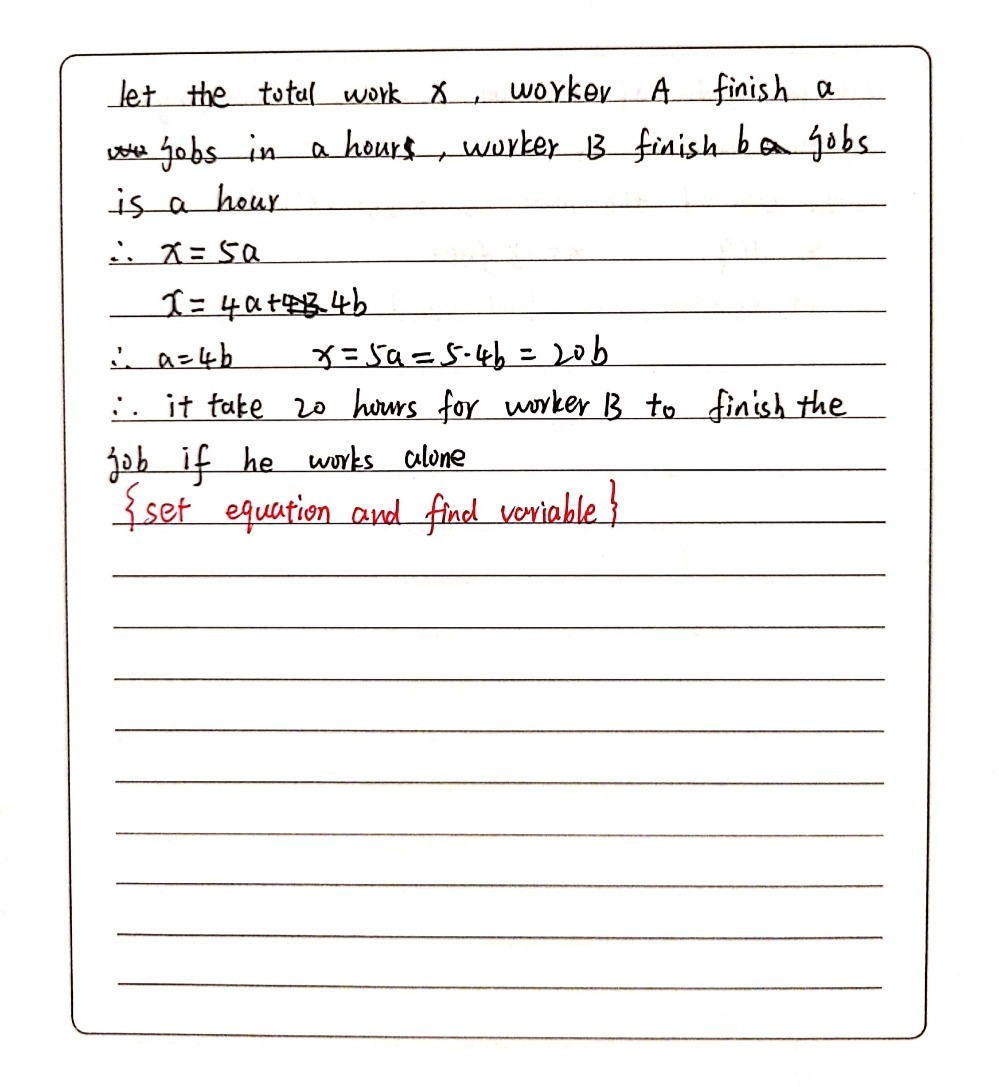 let the total work x, worker A finish a
jobs in a hours, worker B finish b jobs
is a hour
∴ x = 5a
x = 4a + 4b
∴ a = 4b x = 5a = 5·4b = 20b
∴ it take 20 hours for worker B to finish the
job if he works alone
{set equation and find variable}